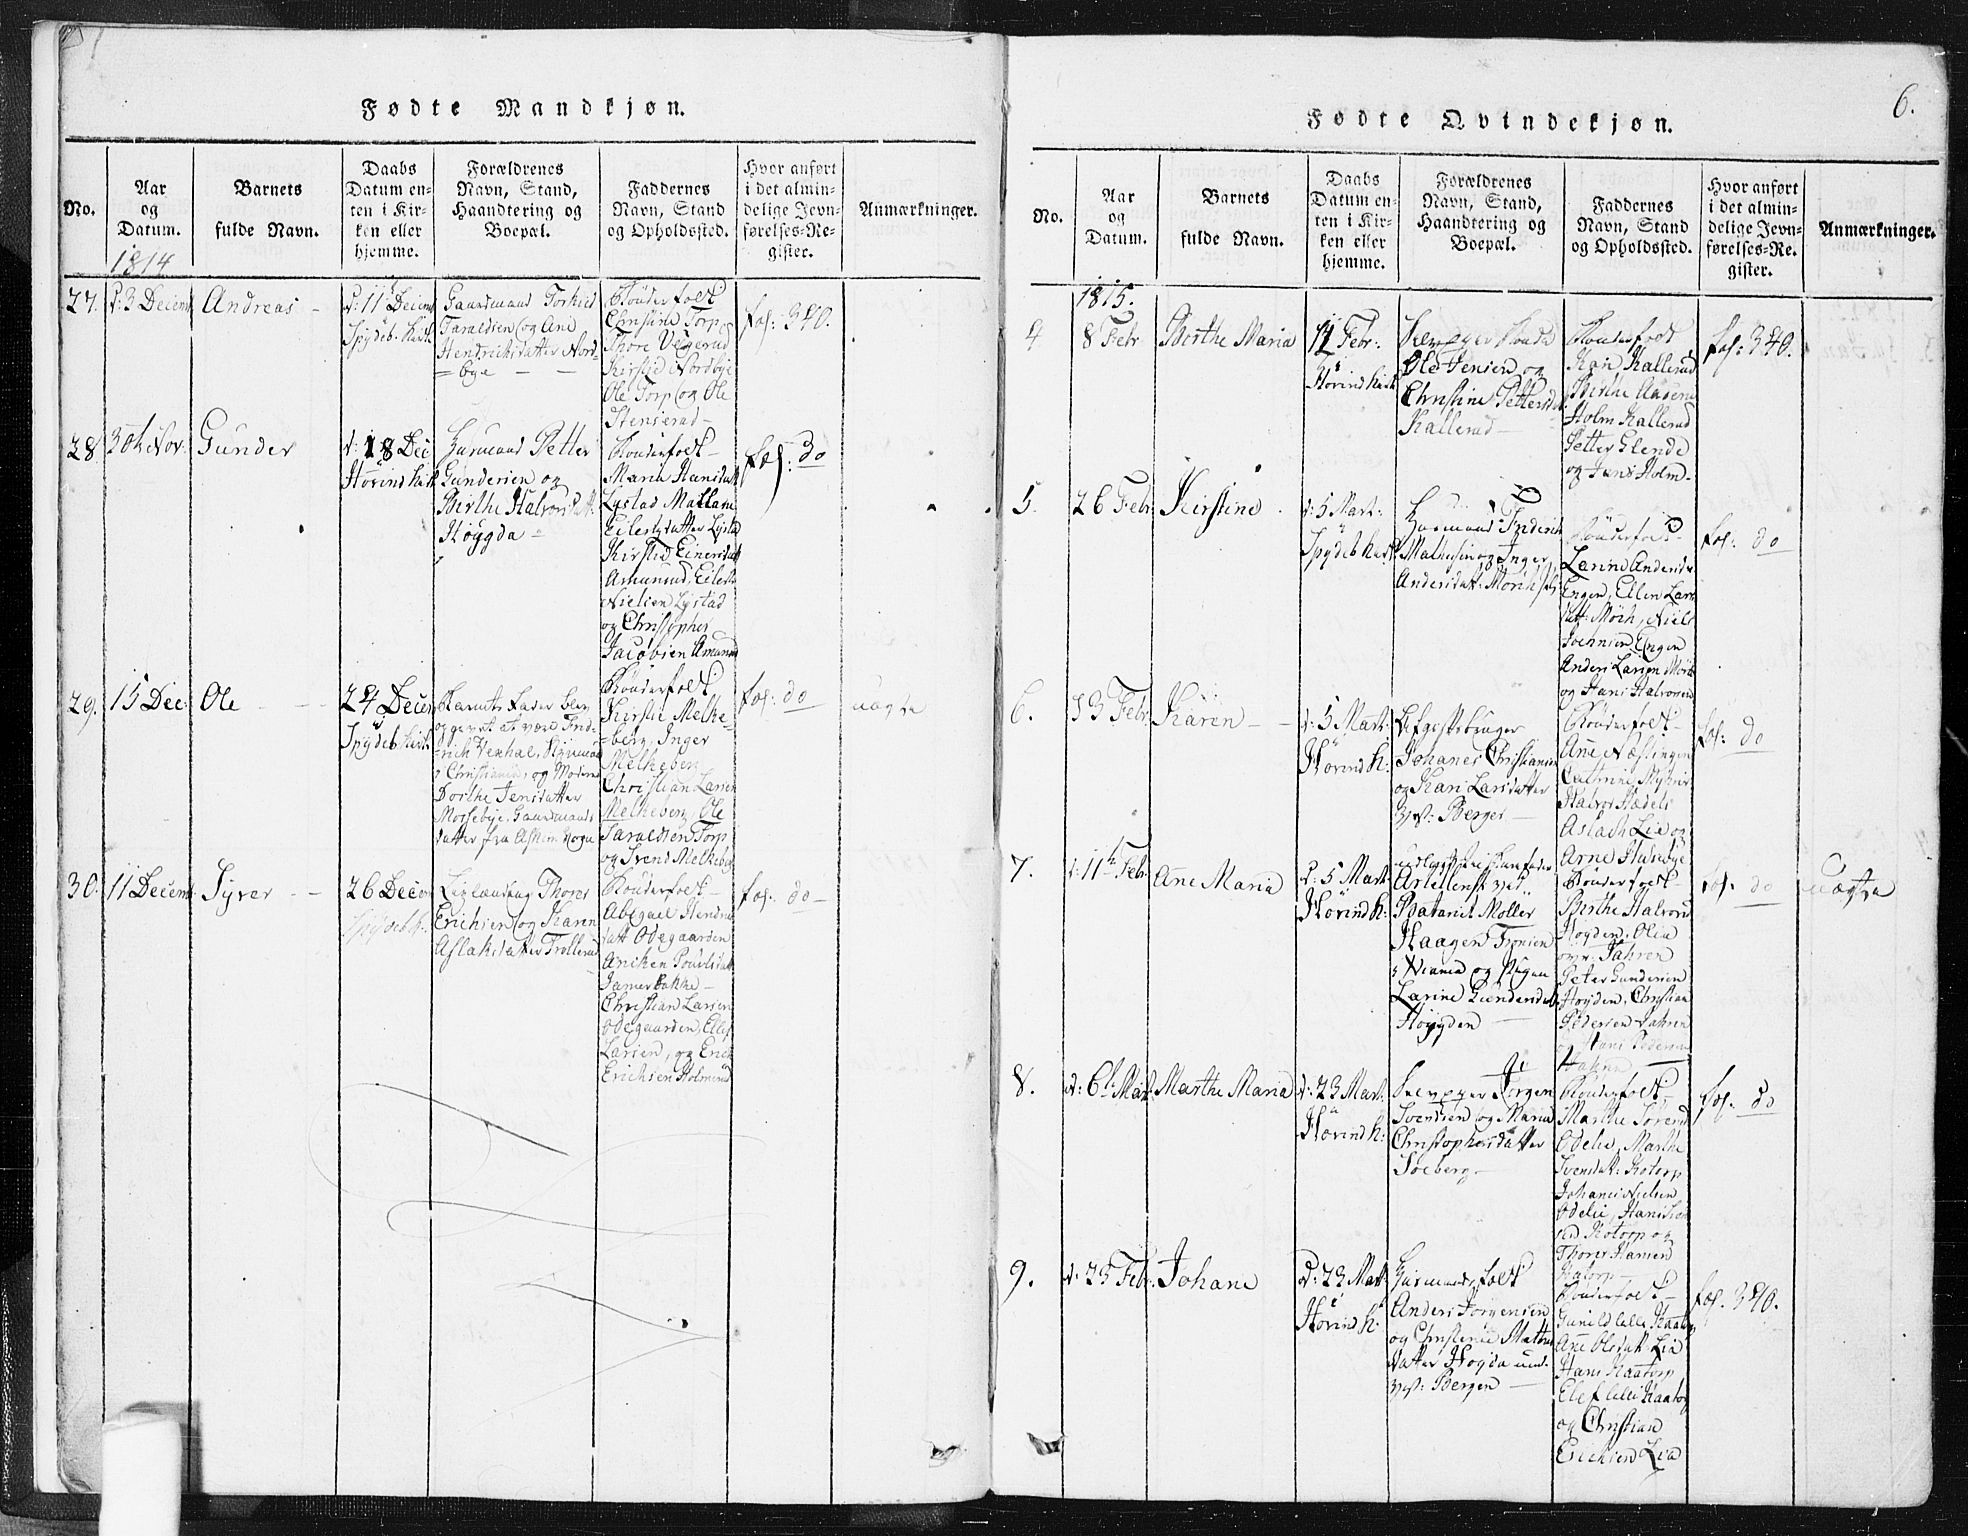 Fødte Mandkjøn.
No.
Aar
og
Datum.
Barnets
fulde Navn.
Daabs
Datum en-
ten i Kir-
ken eller
hjemme.
Forældrenes
Navn, Stand,
Haandtering og
Boepæl.
Faddernes
Navn, Stand
og Opholdssted.
Hvor anført
i det almin-
delige Jevn-
førelses-Re-
gister.
Anmærkninger.
1814
27.
d: 3 Decem
Andreas
d: 11 Decem
Spydeb: Kirk
Gaardmand Torkild
Taraldsen og Ane
Hendrichsdatter Nord-
=bye
Bønderfolk
Christine Torp
Thore Vegerud
Kirstie Nordbye
Ole Torp og Ole
Stenserud
fol: 340.
28
30te Nov:
Gunder
d: 18 Dec
Hovind Kirk
Huusmand Petter
Gundersen og
Birthe Halvorsdatt:
Høygda
Bønderfolk
Maria Hansdatt
Lystad Mallene
Eilertsdatter Lystad
Kirstie Einersdatt
Amunrud, Eilert
Nielsen Lystad
og Christopher
Jacobsen Amunrud
fol: do
29.
15 Dec:
Ole
24 Decem
Spydeb Kirk
Barnets Fader blev
opgivet at være Fride-
=rich Vexhal,
i Christiania, og Moderen
Dorthe Jensdatter
Mossebye, Gaardmands
datter fra Askim Sogn
Bønderfolk
Kirstie Melke=
=berg, Inger
Melkeberg
Christian Larsen
Melkeberg, Ole
Taraldsen Torp
og Svend Melkeberg
fol: do
uægte
30.
11 Decem
Syver
26 Decem
Spydeb k.
Leylænding Thorer
Erichsen og Karen
Aslaksdatter Trollerud
Bønderfolk
Abegael Hendrichs
datt Odegaarden
Aniken Poulsdatt
Jamerbakke
Christian Larsen
Odegaarden, Ellef
Larsen, og Erich
Erichsen Holmerud
fol: do
6.
Fødte Qvindekjøn.
No.
Aar
og
Datum.
Barnets
fulde Navn.
Daabs
Datum en-
ten i Kir-
ken eller
hjemme.
Forældrenes
Navn, Stand,
Haandtering og
Boepæl.
Faddernes
Navn, Stand
og Opholdssted.
Hvor anført
i det almin-
delige Jevn-
førelses-Re-
gister.
Anmærkninger.
1815.
4
8 Febr
Birthe Maria
12 Febr:
Hovind Kirk
Selveyer Bonde
Ole Jensen og
Christine Pettersdatt
Kallerud
Bønderfolk
Kari Kallerud
Birthe Andrea
Holm Kallerud
Petter Glende
og Jens Holm
fol: 340.
5.
26 Febr
Kirstine
d: 5 Mart:
Spydeb kirk
Huusmand Friderich
Mathisen og Inger
Andersdatt: Mørk
Bønderfolk
Larine Andersdr
Engen, Ellen Lars
datt: Mörk, Niels
Jochnsen Engen
Anders Larsen Mörk
og Hans Halvorsen
fol: do
6.
13 Febr
Karen
d: 5 Mart:
Hovind k:
Johanes Christiansen
og Kari Larsdatter
Berger
Bønderfolk
Ane Næslingen
Catrine Myhrer
Halvor Hædeli
Aslach Lie og
Arne Husebye
fol: do
7.
d: 11te Febr
Ane Maria
d: 5 Mart
Hovind k:
Møller
Haagen Tronsen
og Pigen
Larine Gundersdatt
Høygden
Bønderfolk
Birthe Halvorsd
Høyden, Olia
Jahren
Peter Gundersen
Høyden, Christian
Pedersen Jahren
og Hans Pedersen
Jahren
fol: do
uægte
8.
d: 6te Mart
Marthe Maria
d: 23 Mart:
Hovind k:
Selveyer Jörgen
Svendsen og Maria
Christophersdatter
Soeberg
Bønderfolk
Marthe Sørensd
Odelie, Marthe
Svensdatt: Kotorp
Johanes Nielsen
Odelie, Hans
Kotorp og
Thorer Hansen
Katorp
fol: do
9.
d: 25 Febr:
Johane
d: 23 Mart
Hovind k:
Huusmandsfolk
Anders Jörgensen
og Christense Mathis
datter Høgda und.
Bergen
Bønderfolk
Gunild lille Kaatorp
Ane Olsdatt Lia
Hans Kaatorp
Elef lille Kaatorp
og Christian
Erichsen Lia
fol: 340.